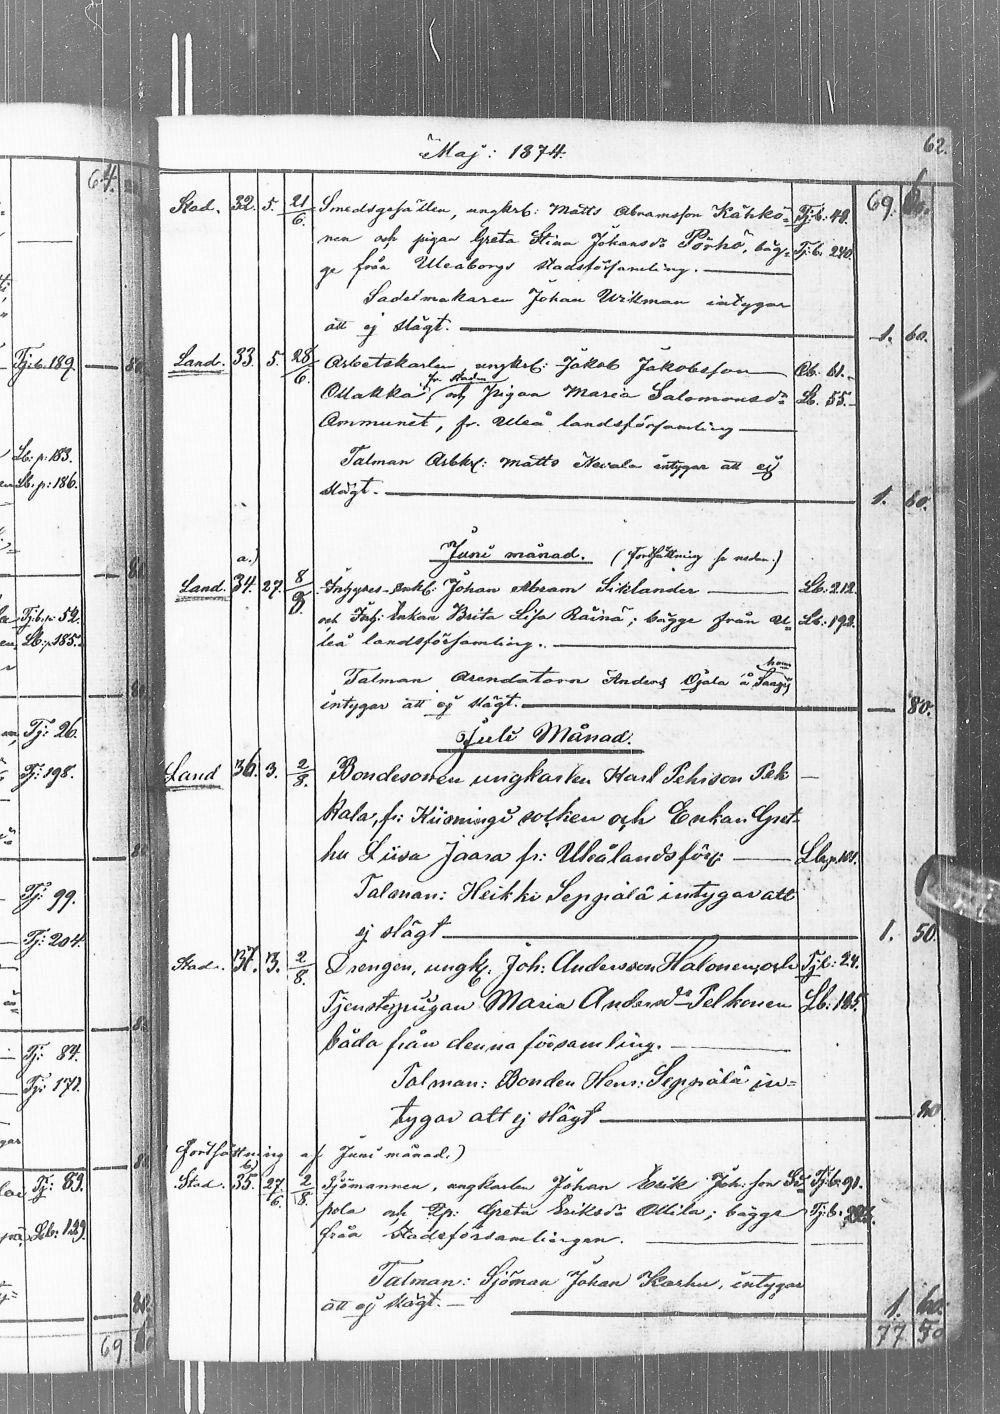 64.
Tj:b. 189. 80.
Lb: p: 183.
Lb. p: 186.
80.
Tj:b. p: 52.
Lb: p. 185.
80.
Tj: 26.
Tj: 198.
80
Tj: 99.
Tj: 204.
80
Tj: 84.
Tj: 171.
80
Tj: 83.
Lb: 129.
80.
69 60
Maj: 1874. 62.
69. 60.
Stad. 32. 5. 21/6. Smedsgesällen, ungkrl: Matts Abramsson Kähkö= Tj:b. 49.
nen och pigan Greta Stina Johansdr Pörhö, bäg= Tj:b. 240.
ge från Uleåborgs stadsförsamling.
Sadelmakaren Johan Wikman intygar
att ej slägt. 1. 60.
Land. 33. 5. 28/6. Arbetskarlen ungkrl: Jakob Jakobsson Ab. 61.
Ollakka fr. staden och Pigan Maria Salomonsdr Lb. 55.
Ammunét, fr. Uleå landsförsamling
Talman Arbkrl: Matts Kevala intygar att ej
slägt. 1. 60.
Juni månad. (Fortsättning se nedan.)
a.)
Land. 34. 27. 8/8. Inhyses-Enkl: Johan Abram Siklander Lb. 212.
och Inh: Enkan Brita Lisa Räinä; bägge från U= Lb. 192.
leå landsförsamling.
Talman Arendatorn Anders Ojala å
intygar att ej slägt. 80.
Juli Månad.
Land 36. 3. 2/8. Bondesonen ungkarlen Karl Pehrson Pek
kala, fr: Kiiminge socken och Enkan Gret-
ha Liisa Jaara fr: Uleålandsförs: Lb. p. 101.
Talman: Heikki Seppälä intygar att
ej slägt 1. 50.
Stad. 37. 3. 2/8. Drengen, ungk. Joh: Andersson Halonen, och Tj:b: 24.
Tjenstepigan Maria Andersdr Pelkonen Lb: 185.
båda från denna församling.
Talman: Bonden Henr: Seppälä in=
tygar att ej slägt 80
Fortsättning af Juni månad.)
b)
Stad. 35. 27/6. 2/8. Sjömannen, ungkarlen Johan Erik Joh:son Si= Tj:b. 91.
pola och Pp: Greta Eriksdr Ollila; bägge Tj:b.
från Stadsförsamlingen.
Talman: Sjöman Johan Karhu, intygar
att ej slägt. 1. 60.
77 50